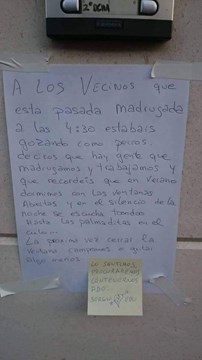 2º DCHA
A LOS VECINOS que
esta pasada madrugada
a las 4:30 estabais
gozando como perros.
deciros que hay gente que
madrugamos y trabajamos y
que recordeis que en verano
dormimos con las ventanas
abiertas y en el silencio de la
noche se escucha
hasta las palmaditas en el
culo...
La proxima vez cerrar la
ventana campeones o gritar
algo menos.
LO SENTIMOS
PROCURAREMOS